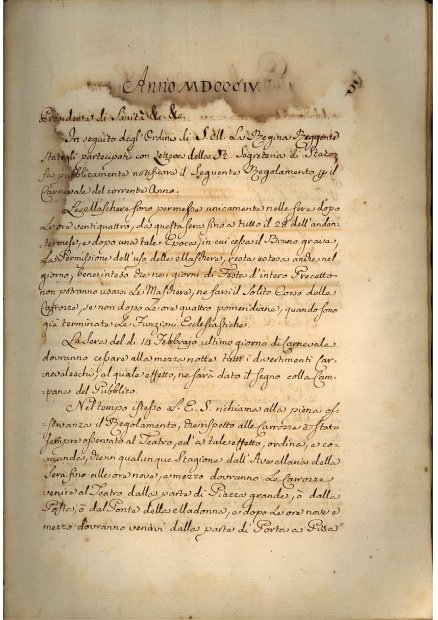 Anno MDCCCIV
Presidente di Sanità &c. &c.
In seguito degl'Ordini di S. M. La Regina Reggente
Statigli partecipati con Lettera della R. Segreteria di Stato
fa pubblicamente notificare il seguente Regolamento p il
Carnevale del corrente Anno.
Le Maschere sono permesse unicamente nelle sere dopo
Le ore ventiquattro, da questa sera fino a tutto il 28 dell'andan-
te mese, e dopo una tale Epoca, in cui cessa il Bruno grave,
La Permissione dell'uso delle Maschere, resta estesa anche nel
giorno, bene inteso che nei giorni di Festa d'intero Precetto
non potranno usarsi Le Maschere, ne farsi il Solito Corso delle
Carrozze, se non dopo Le ore quattro pomeridiane, quando sono
già terminate Le Funzioni Ecclesiastiche.
La Sera del dì 14 Febbrajo ultimo giorno di Carnevale
dovranno cessare alla mezza notte tutti i divertimenti Car-
nevaleschi, al quale effetto, ne sarà dato il segno colla Cam-
pana del Pubblico.
Nel tempo istesso L. E. S. richiama alla piena os-
servanza il Regolamento, che rispetto alle Carrozze è stato
sempre osservato al Teatro, ed a tale effetto, ordina, e co-
manda, che in qualunque Stagione dall'Ave Maria della
Sera fino alle ore nove, e mezzo dovranno Le Carrozze
venire al Teatro dalla parte di Piazza grande, ò dalla
Posta, ò dal Ponte della Madonna, e dopo Le ore nove e
mezzo dovranno venirvi dalla parte di Porta a Pisa